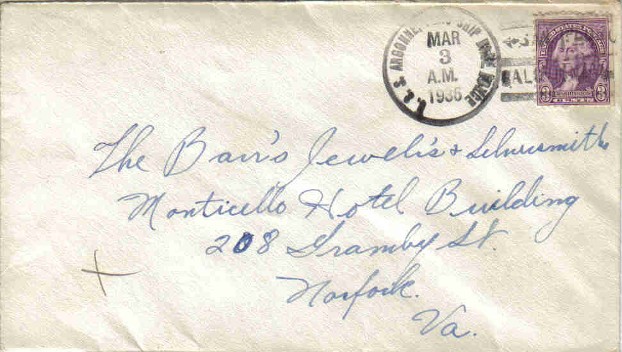 U.S.S. ARGONNE
MAR
3
A.M.
1935
The Barr's Jewelis & Silversmiths
Monticello Hotel Building
208 Granby St.
Norfock.
Va.
3 3